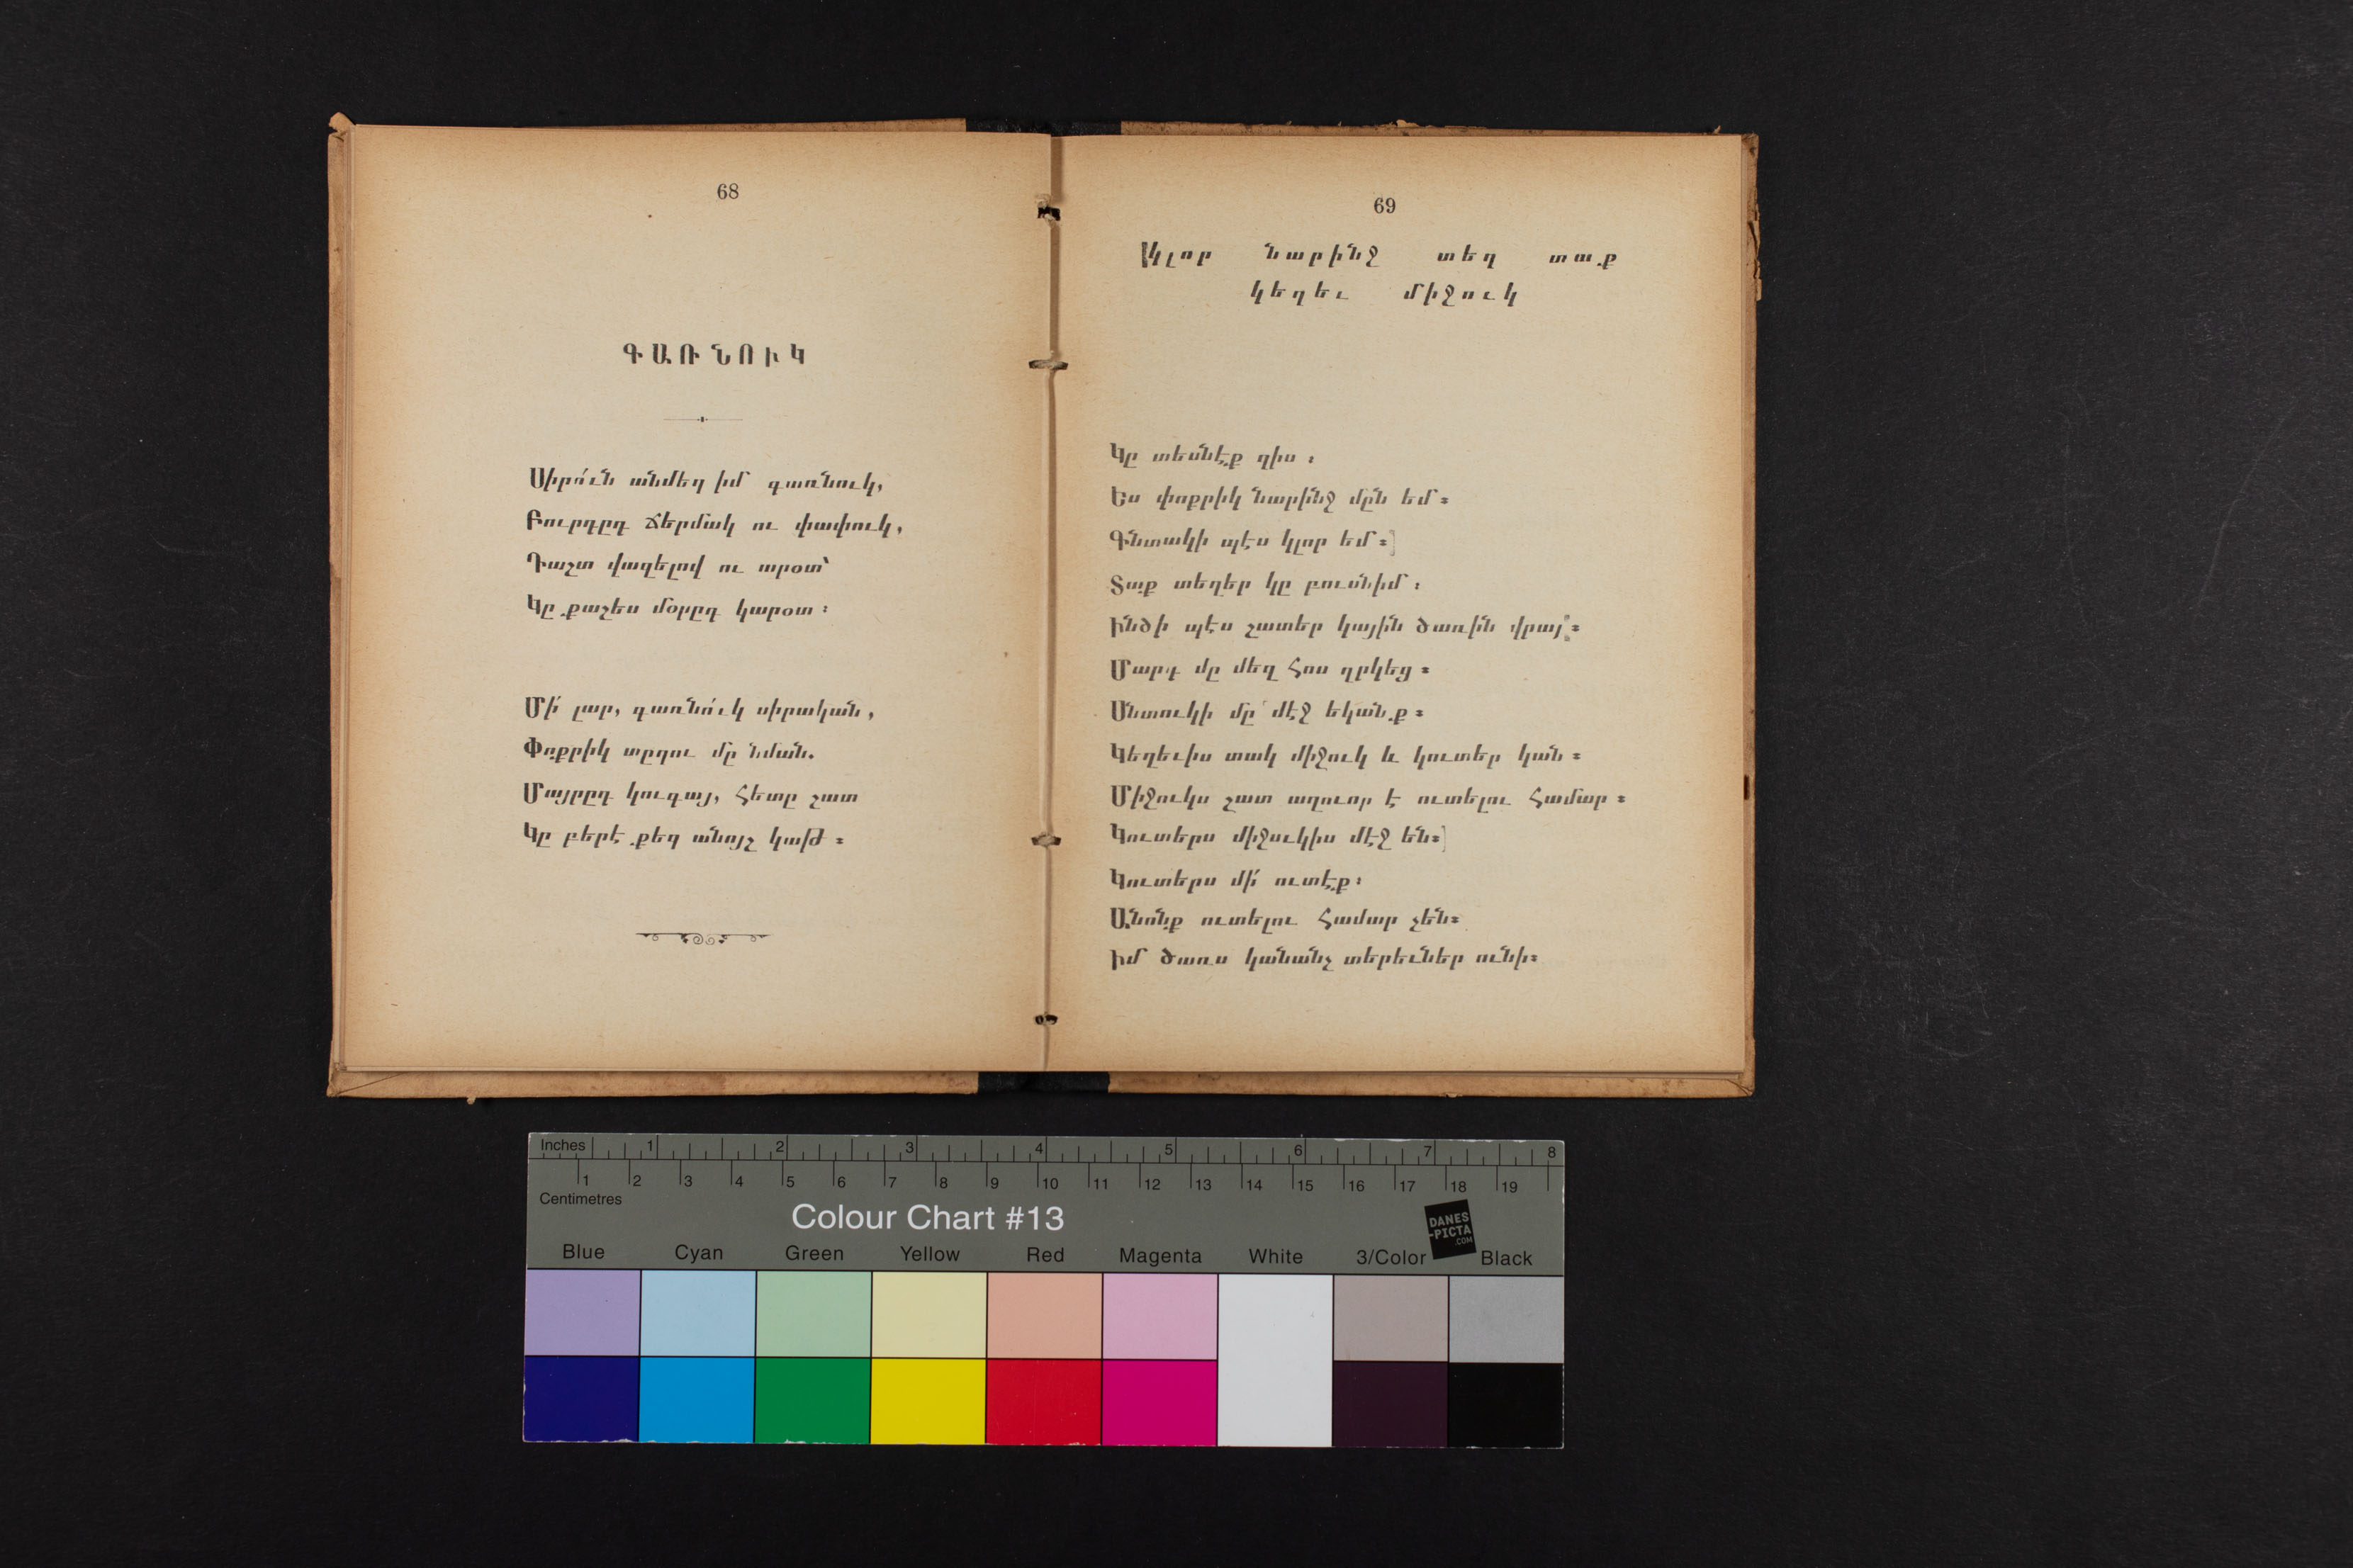 68
ԳԱՌՆՈՒԿ
Սիրո՛ւն անմեղ իմ գառնուկ,
Բուրդըդ ճերմակ ու փափուկ,
Դաշտ վազելով ու արօտ՝
Կը քաշես մօրըդ կարօտ։
Մի՛ լար, գառնո՛ւկ սիրական,
Փոքրիկ տըղու մը նման.
Մայրըդ կուգայ, հետը շատ
Կը բերէ քեզ անոյշ կաթ։
69
Կլոր նարինջ տեղ տաք
կեղեւ միջուկ
Կը տեսնէք զիս։
Ես փոքրիկ նարինջ մըն եմ։
Գնտակի պէս կլոր եմ։
Տաք տեղեր կը բուսնիմ։
Ինծի պէս շատեր կային ծառին վրայ։
Մարդ մը մեզ հոս ղրկեց։
Սնտուկի մը մէջ եկանք։
Կեղեւիս տակ միջուկ և կուտեր կան։
Միջուկս շատ աղուոր է ուտելու համար։
Կուտերս միջուկիս մէջ են։
Կուտերս մի՛ ուտէք։
Անոնք ուտելու համար չեն։
Իմ ծառս կանանչ տերեւներ ունի։
Inches 1 2 3 4 5 6 7 8
1 2 3 4 5 6 7 8 9 10 11 12 13 14 15 16 17 18 19
Centimetres
Colour Chart #13
DANES
-PICTA
.COM
Blue Cyan Green Yellow Red Magenta White 3/Color Black